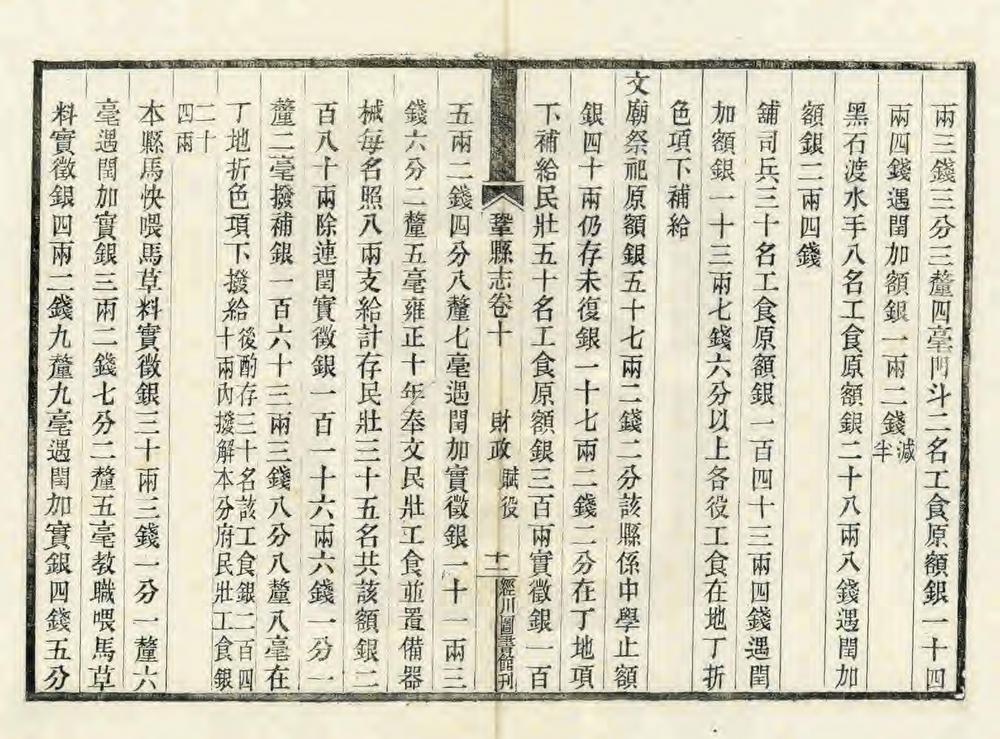 兩三錢三分三釐四毫門斗二名工食原額銀一十四
兩四錢遇閏加額銀一兩二錢減半
黑石渡水手八名工食原額銀二十八兩八錢遇閏加
額銀二兩四錢
舖司兵三十名工食原額銀一百四十三兩四錢遇閏
加額銀一十三兩七錢六分以上各役工食在地丁折
色項下補給
文廟祭祀原額銀五十七兩二錢二分該縣係中學止額
銀四十兩仍存未復銀一十七兩二錢二分在丁地項
下補給民壯五十名工食原額銀三百兩實徵銀一百
鞏縣志卷十 財政 賦役 十二 經川圖書館刊
五兩二錢四分八釐七毫遇閏加實徵銀一十一兩三
錢六分二釐五毫雍正十年奉文民壯工食並置備器
械每名照八兩支給計存民壯三十五名共該額銀二
百八十兩除連閏實徵銀一百一十六兩六錢一分一
釐二毫撥補銀一百六十三兩三錢八分八釐八毫在
丁地折色項下撥給後酌存三十名該工食銀二百四十兩內撥解本分府民壯工食銀
二十四兩
本縣馬快喂馬草料實徵銀三十兩三錢一分一釐六
毫遇閏加實銀三兩二錢七分二釐五毫教職喂馬草
料實徵銀四兩二錢九釐九毫遇閏加實銀四錢五分